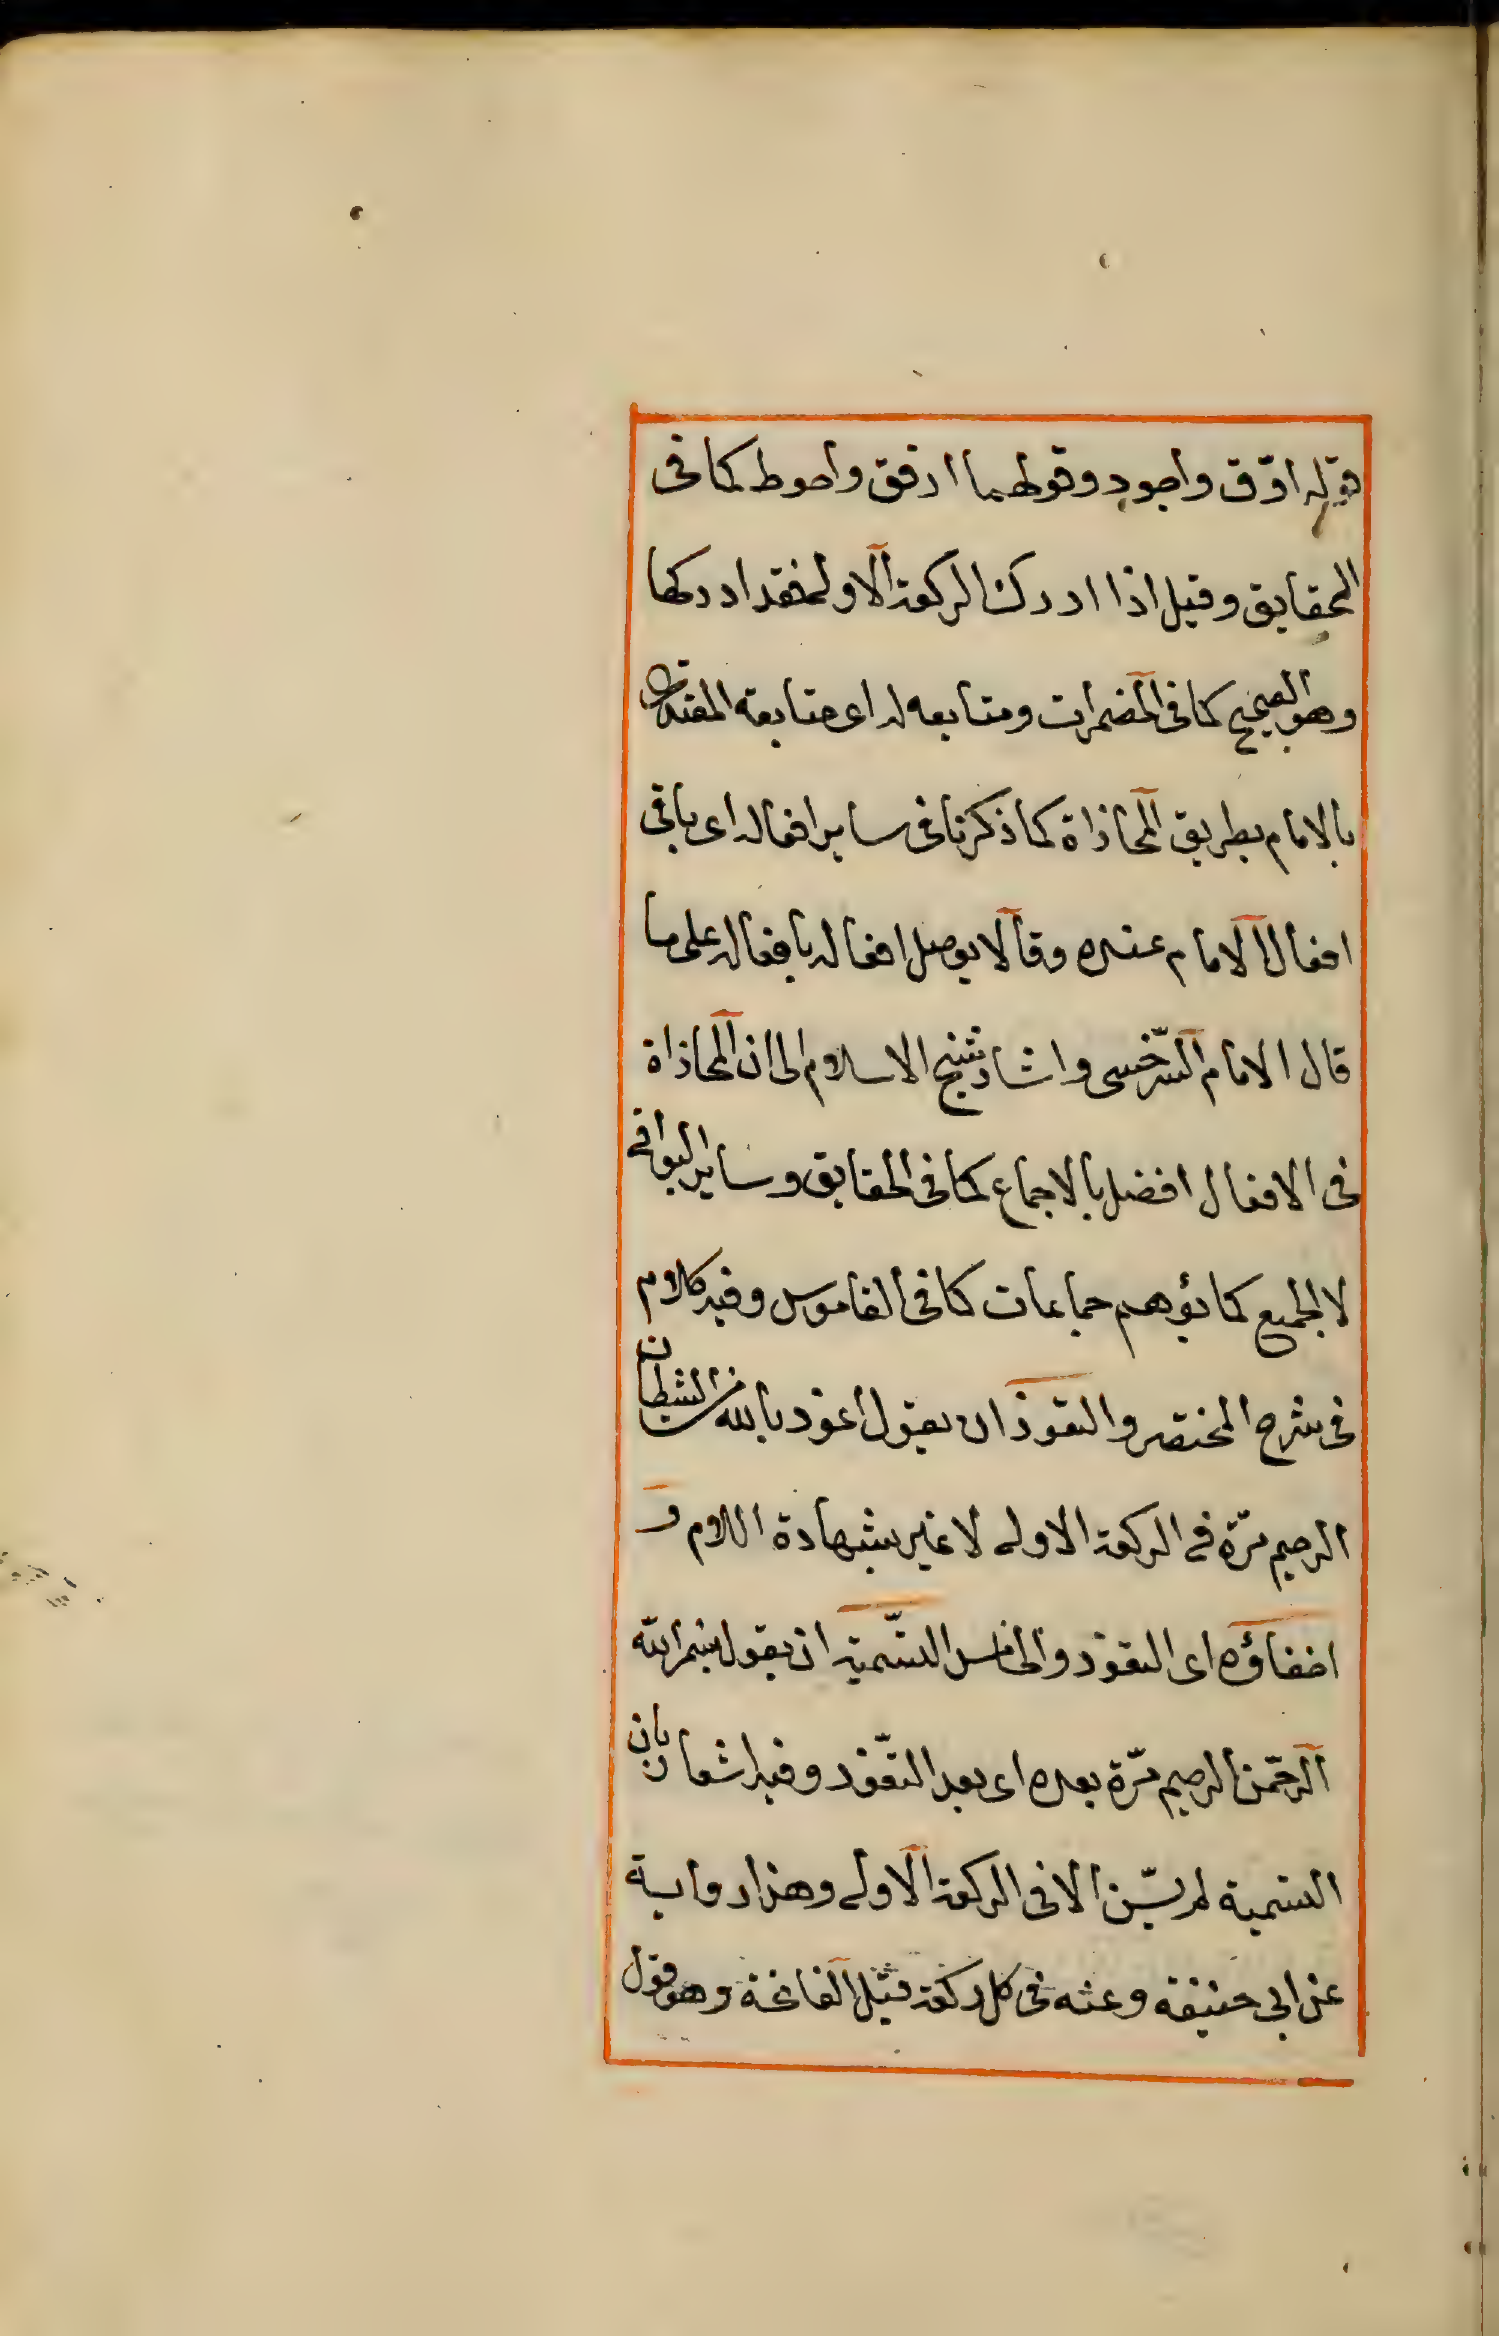 قوله ادق واجود وقولهما ارفق واحوط كما فى
الحقايق وقيل اذا ادرك الركعة الاولى فقد ادركها
وهو الصحيح كما فى المضمرات ومتابعه له اى متابعة المقتدى
بالامام بطريق المحاذاة كما ذكرنا فى ساير افعاله اى باقى
افعال الامام عنده وقالا يوصل افعاله بافعاله على ما
قال الامام السّرخسى واشار شيخ الاسلام الى ان المحاذاة
فى الافعال افضل بالاجماع كما فى الحقايق وساير البواقى
لا الجميع كما يؤهم جماعات كما فى القاموس وفيه كلام
فى شرح المختصر والتعوذ ان يقول اعوذ بالله من الشيطان
الرجيم مرّة فى الركعة الاولى لا غير بشهادة اللام و
اخفاؤه اى التعوّذ والخامس التسّمية ان يقول بسم الله
الرحمّن الرحيم مرّة بعده اى بعد التعّوذ وفيه اشعار بان
التسمية لم يسّن الا فى الركعة الاولى وهذا رواية
عن ابى حنيفة وعنه فى كل ركعة قبل الفاتحة وهو قول